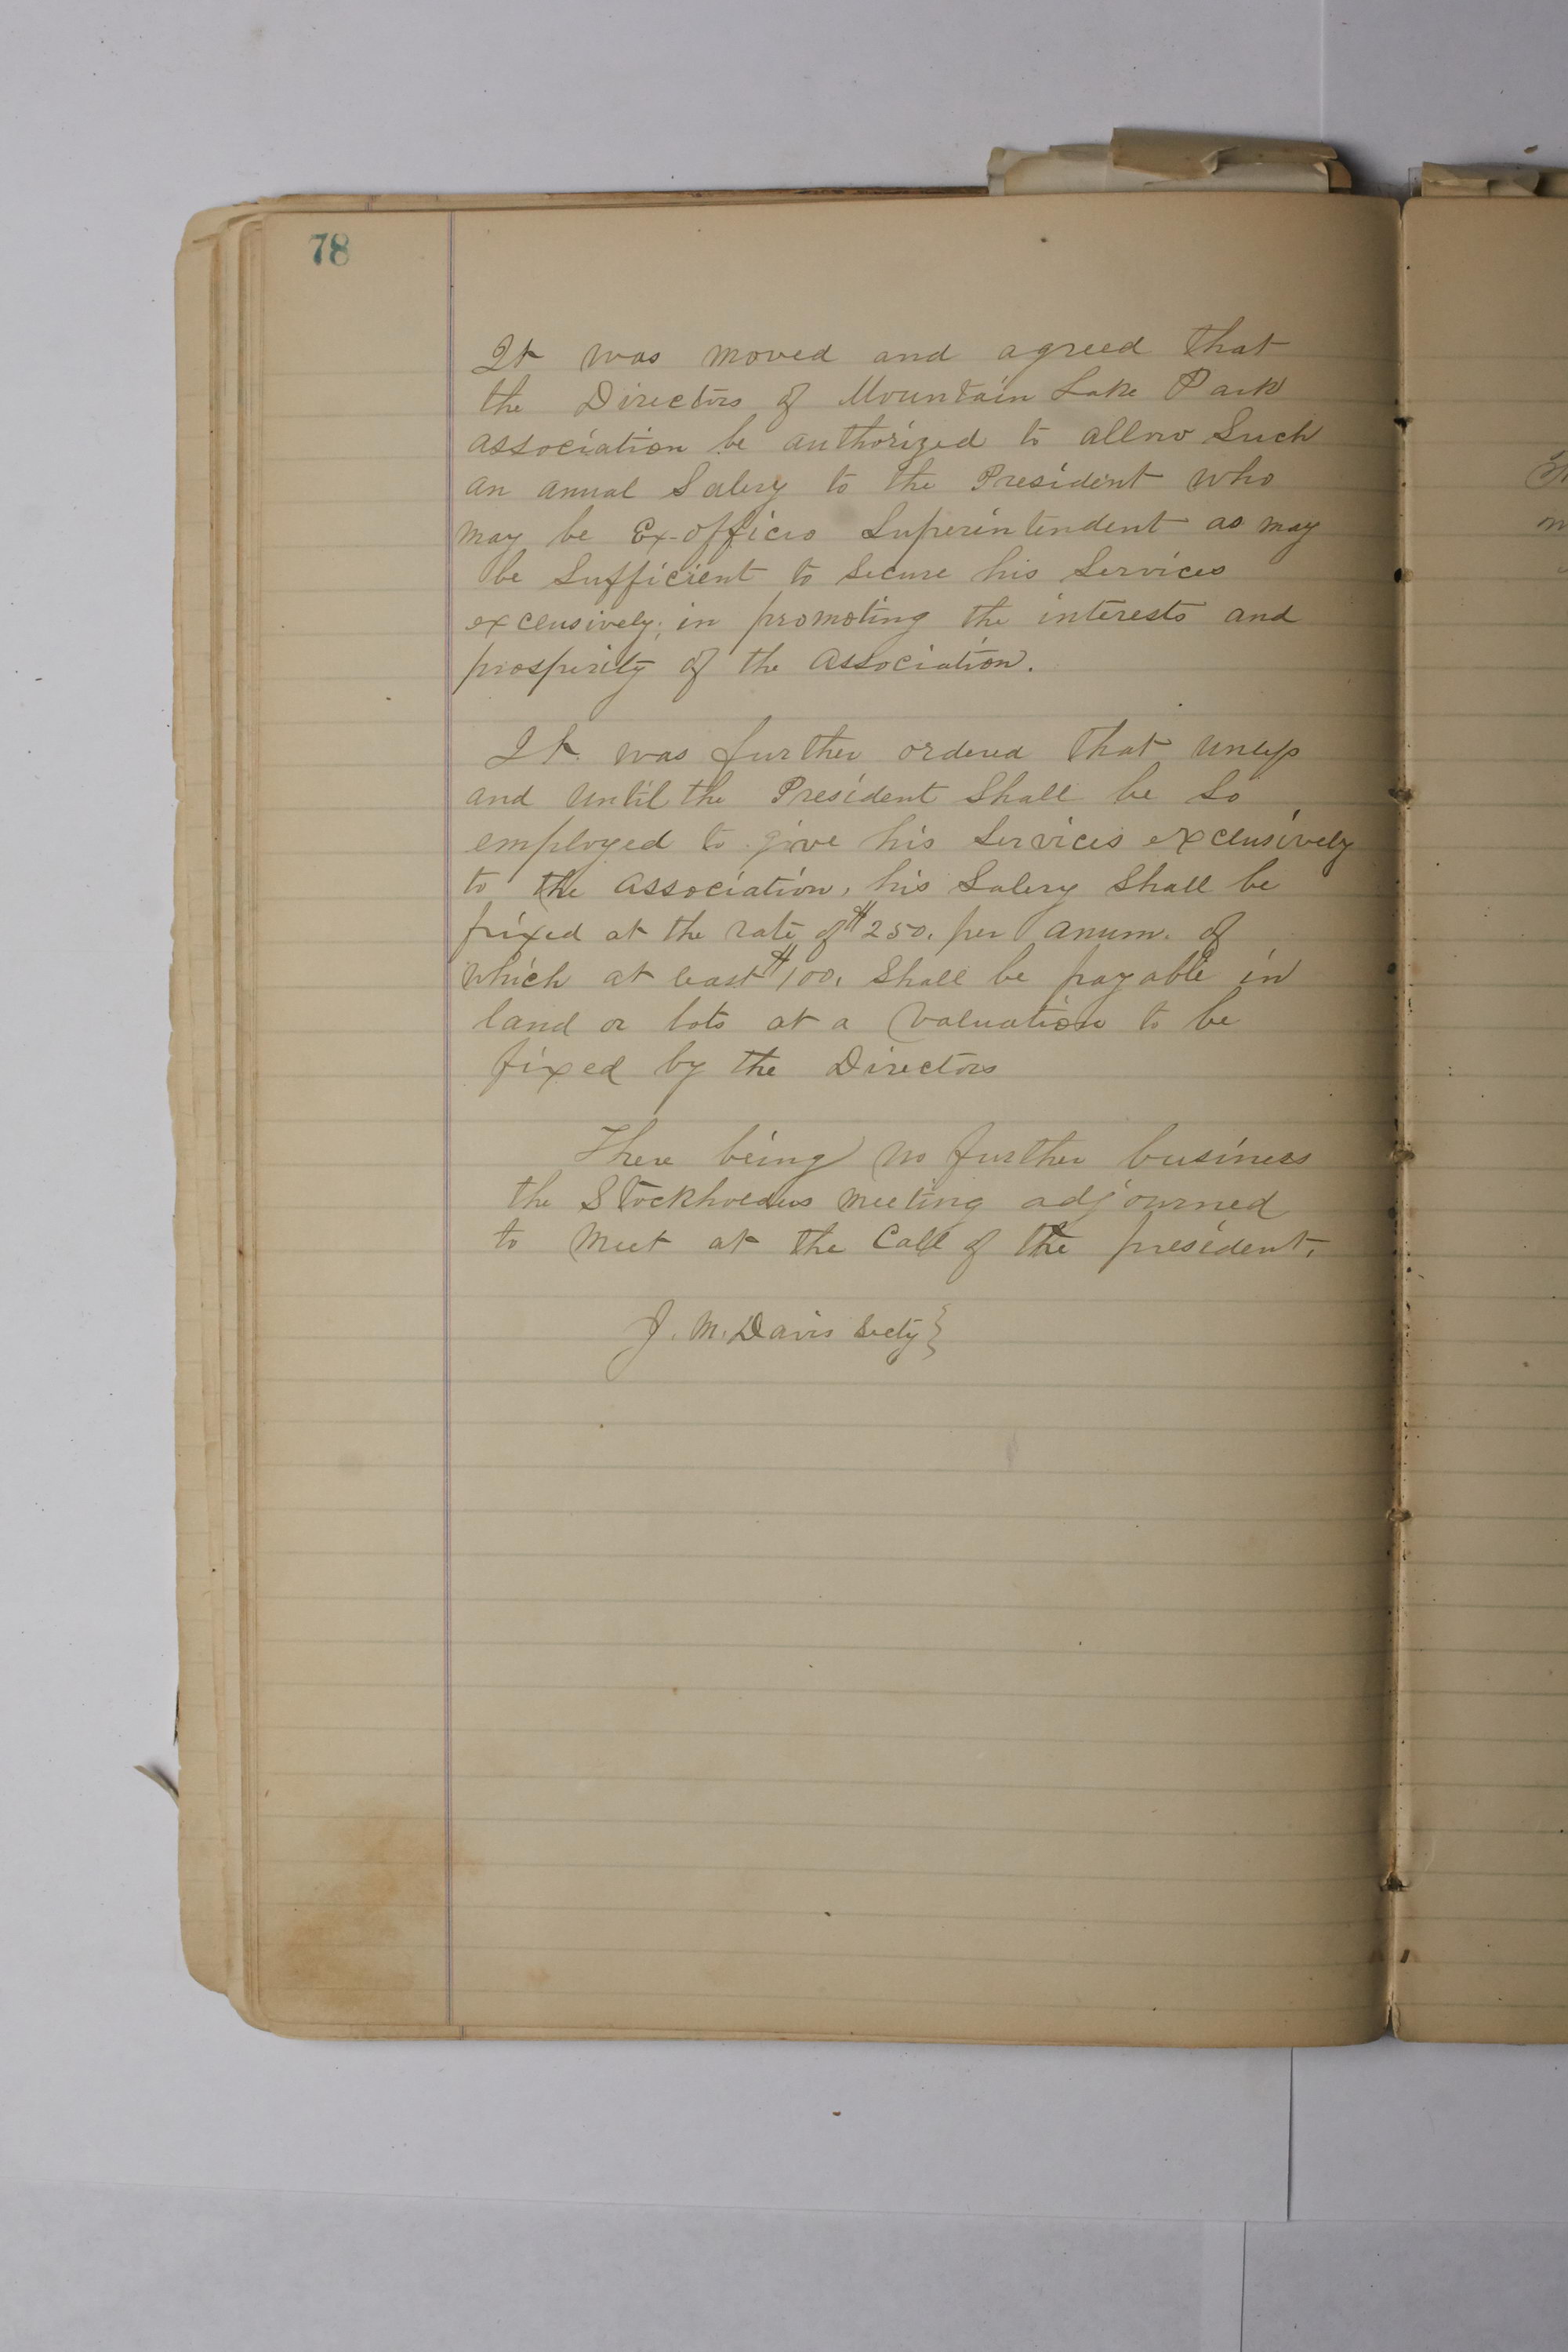 78
It was moved and agreed that
the Directors of Mountain Lake Park
association be authorized to allow Such
an anual Salery to the President who
may be Ex-officio Superintendent as may
be Sufficient to secure his Services
exclusively; in promoting the interests and
prosperity of the association.
It was further ordered that unless
and until the President Shall be so
employed to give his Services exclusively
to the association, his Salery Shall be
fixed at the rate of $250. per anum. of
which at least $100. Shall be payable in
land or lots at a valuation to be
fixed by the Directors
There being no further business
the Stockholders meeting adjourned
to meet at the Call of the president.
J. M. Davis Secty}